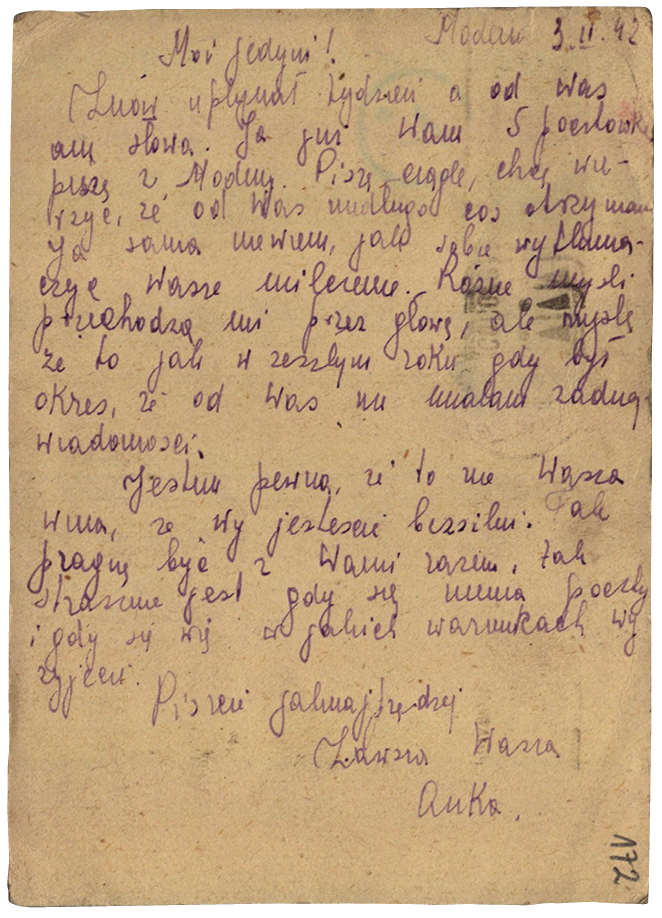 Moi jedyni! Modlin 3.II.42
Znów upłynął tydzień a od was
ani słowa. Ja już wam 5 pocztówkę
piszę z Modlin. Piszę ciągle, chcę wie-
rzyć, że od was niedługo coś otrzymam
Ja sama niewiem, jak sobie wytłuma-
czyć wasze milczenie. Różne myśli
przechodzą mi przez głowę, ale myślę
że to jak w zeszłym roku gdy był
okres, że od was nie miałam żadnej
wiadomości.
Jestem pewna, że to nie Wasza
wina, że wy jesteście bezsilni. Tak
pragnę być z Wami razem, tak
straszne jest gdy się niema poczty
i gdy się wie w jakich warunkach wy
żyjecie.
Piszcie jaknajprędzej
Zawsze Wasza
Anka.
172